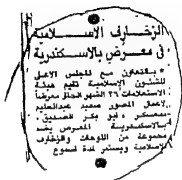 الزخارف الاسلامية
فى معرض بالاسكندرية
* بالتعاون مع المجلس الاعلى
للشئون الإسلامية تقيم هيئة
الاستعلامات ٢٦ الشهر الحالى معرضاً
لاعمال المصور سعيد عبدالعليم
بمعسكر أبو بكر الصديق
بالاسكندرية المعرض يضم
مجموعة من اللوحات والزخارف
الاسلامية ويستمر لمدة اسبوع